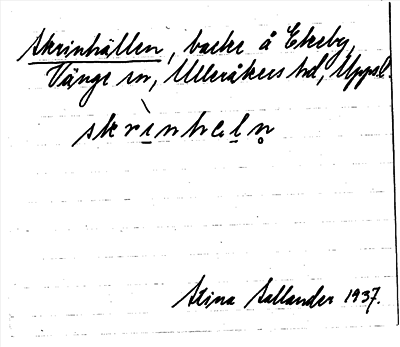 Skrinhällen, backe å Ekeby,
Vänge sn, Ulleråkers hd, Upps.l.
skrìnhęln̥
Stina Sallander 1937.